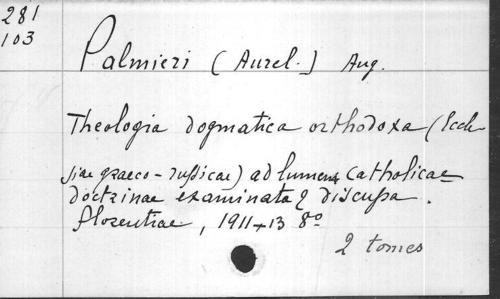 281
103
Palmieri (Aurel.) Aug.
Theologia dogmatica orthodoxa (Eccle
siae graeco-russicae) ad lumen catholicae
doctrinae examinata & discussa.
florentiae, 1911+13 8º
2 tomes